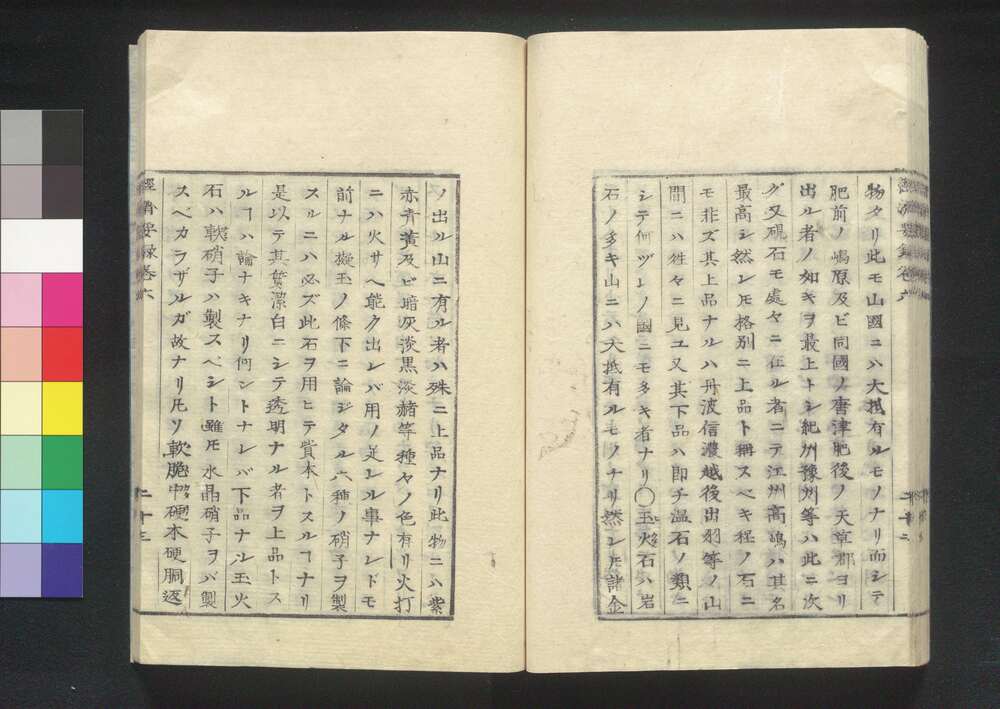 物タリ此モ山國ニハ大抵有ルモノナリ而シテ
肥前ノ嶋原及ビ同國ノ唐津肥後ノ天草郡ヨリ
出ル者ノ如キヲ最上トシ紀州豫州等ハ此ニ次
グ又硯石モ處々ニ在ル者ニテ江州高嶋ハ其名
最高シ然レ𪜈格別ニ上品ト稱スベキ程ノ石ニ
モ非ズ其上品ナルハ丹波信濃越後出羽等ノ山
間ニハ徃々ニ見ユ又其下品ハ即チ温石ノ類ニ
シテ何ヅレノ國ニモ多キ者ナリ〇玉火石ハ岩
石ノ多キ山ニハ大抵有ルモノナリ然レ𪜈諸金
ノ出ル山ニ有ル者ハ殊ニ上品ナリ此物ニハ紫
赤青黃及ビ暗灰淡黒淡赭等種々ノ色有リ火打
ニハ火サヘ能ク出レバ用ノ足レル事ナレドモ
前ナル擬玉ノ條下ニ論ジタル六種ノ硝子ヲ製
スルニハ必ズ此石ヲ用ヒテ資本トスルヿナリ
是以テ其質潔白ニシテ透明ナル者ヲ上品トス
ルヿハ論ナキナリ何ントナレバ下品ナル玉火
石ハ軟硝子ハ製スベシト雖𪜈水晶硝子ヲバ製
スベカラザルガ故ナリ凡ソ軟脆中硬本硬胴返
經濟要録卷六
二十三